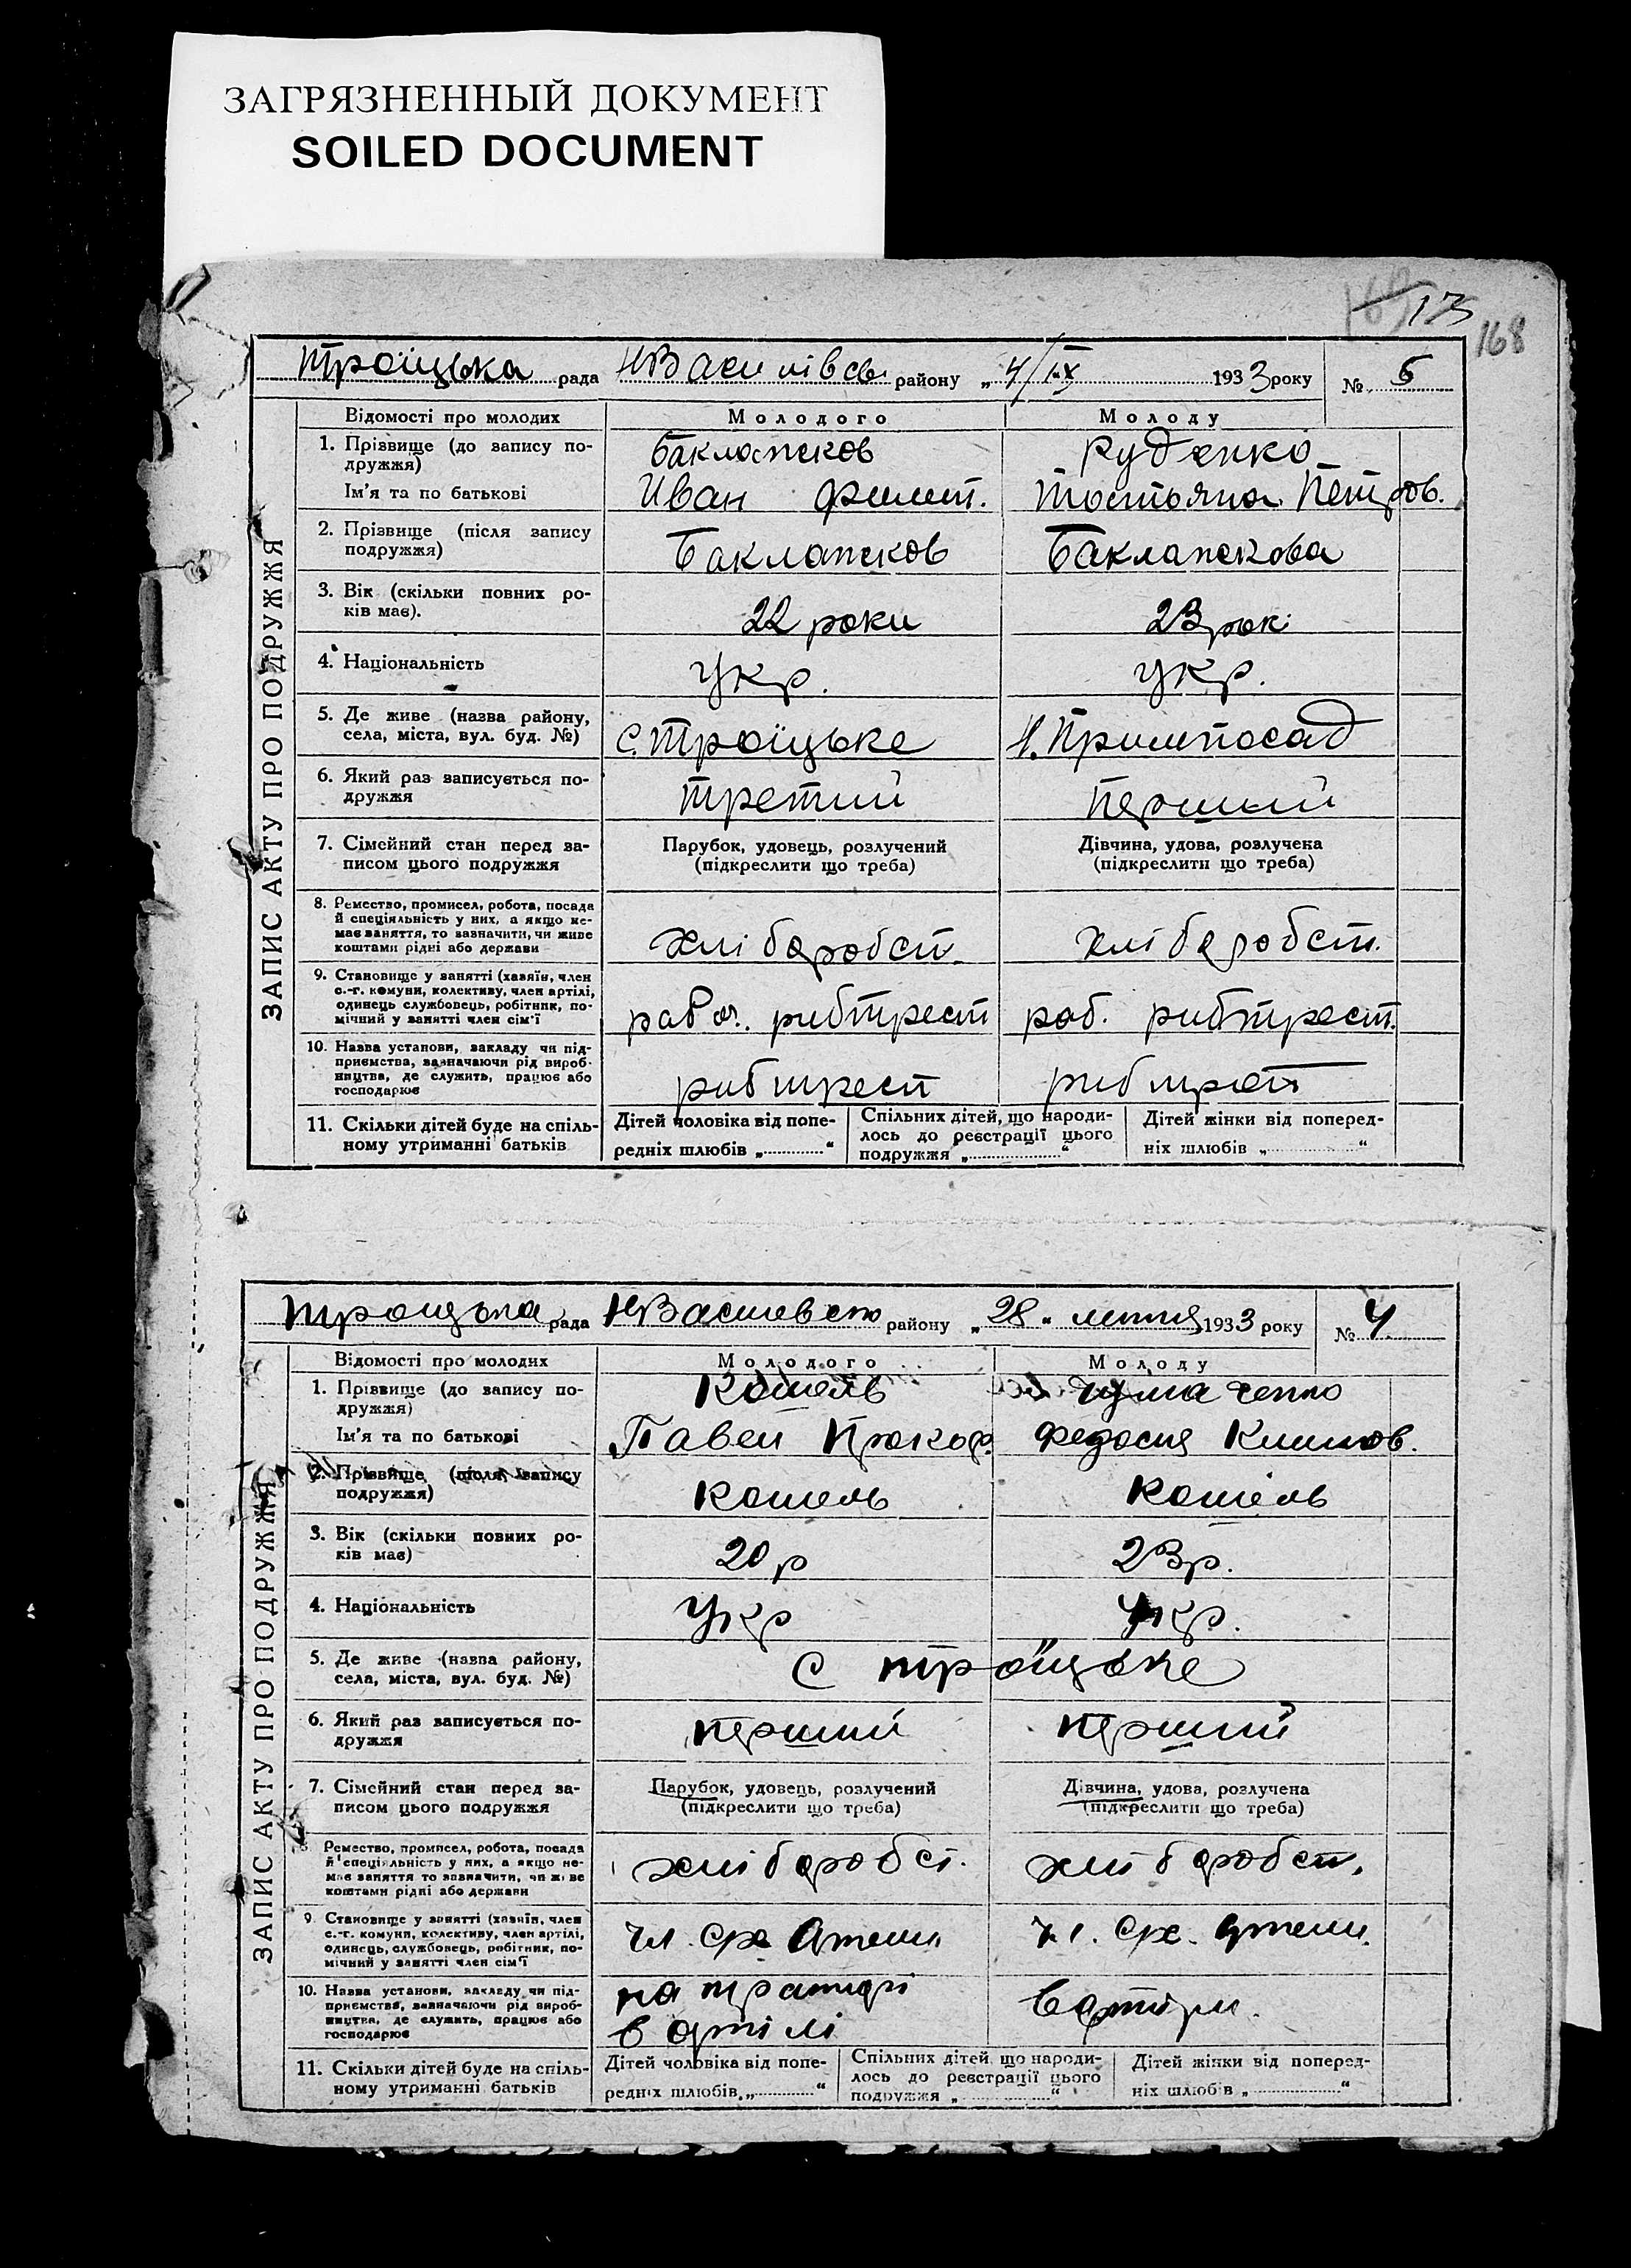 ЗАГРЯЗНЕННЫЙ ДОКУМЕНТ
SOILED DOCUMENT
175
168
Троїцька рада НВасилівськ району „ 4/ІХ 1933 року № 5
ЗАПИС АКТУ ПРО ПОДРУЖЖЯ
Відомості про молодих Молодого Молоду
1. Прізвище (до запису по-
дружжя) Руденко
Ім'я та по батькові Иван Филип. Татьяна Петров.
2. Прізвище (після запису
подружжя)
3. Вік (скільки повних ро-
ків має). 22 роки 23 рок
4. Національність Укр. Укр.
5. Де живе (назва району,
села, міста, вул. буд. №) с. Троїцьке Н. Примпосад
6. Який раз записується по-
дружжя третий перший
7. Сімейний стан перед за-
писом цього подружжя
Парубок, удовець, розлучений
(підкреслити що треба)
Дівчина, удова, розлучена
(підкреслити що треба)
8. Ремество, промисел, робота, посада
й спеціяльність у них, а якщо не-
має заняття, то зазначити, чи живе
коштами рідні або держави
хліборобст. хліборобст.
9. Становище у занятті (хазяїн, член
с.-г. комуни, колективу, член артілі,
одинець службовець, робітник, по-
мічний у занятті член сім'ї
рабоч. рибтрест роб. рибтрест.
10. Назва установи, закладу чи під-
приємства, зазначаючи рід вироб-
ництва, де служить, працює або
господарює
рибтрест рибтрест
11. Скільки дітей буде на спіль-
ному утриманні батьків
Дітей чоловіка від попе-
редніх шлюбів „ “
Спільних дітей, що народи-
лось до реєстрації цього
подружжя „ “
Дітей жінки від поперед-
ніх шлюбів „ “
Троцька рада НВасилевсько району „ 28 “ липня 1933 року № 4
ЗАПИС АКТУ ПРО ПОДРУЖЖЯ
Відомості про молодих Молодого Молоду
1. Прізвище (до запису по-
дружжя) Кошель Чумаченко
Ім'я та по батькові Павел Прокоф. Федосия Климов.
2. Прізвище (після запису
подружжя) Кошель Кошель
3. Вік (скільки повних ро-
ків має) 20 р 23 р.
4. Національність Укр Укр.
5. Де живе (назва району,
села, міста, вул. буд. №) с Троїцьке
6. Який раз записується по-
дружжя перший перший
7. Сімейний стан перед за-
писом цього подружжя
Парубок, удовець, розлучений
(підкреслити що треба)
Дівчина, удова, розлучена
(підкреслити що треба)
Ремество, промисел, робота, посада
й спеціяльність у них, а якщо не-
має заняття то зазначити, чи живе
коштами рідні або держави
хліборобст. хліборобст.
9. Становище у занятті (хазяїн, член
с.-г. комуни, колективу, член артілі,
одинець, службовець, робітник, по-
мічний у занятті член сім'ї
чл. чл.
10. Назва установи, закладу чи під-
приємства, зазначаючи рід вироб-
ництва, де служить, працює або
господарює
в артілі
11. Скільки дітей буде на спіль-
ному утриманні батьків
Дітей чоловіка від попе-
редніх шлюбів „ “
Спільних дітей, що народи-
лось до реєстрації цього
подружжя „ “
Дітей жінки від поперед-
ніх шлюбів „ “